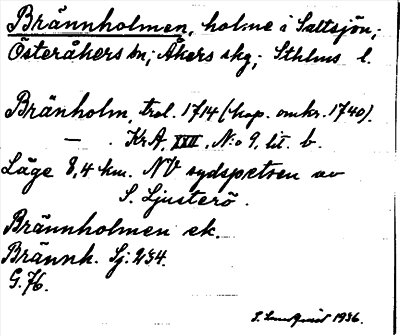 Brännholmen, holme i Saltsjön,;
Österåkers sn; Åkers skg; Sthlms l.
Bränholm, trol. 1714 (kop. omkr. 1740).
— . KrA, XXII, N:o 9, lit. b.
Läge 8,4 km. NV sydspetsen av
S. Ljusterö.
Brännholmen ek.
Brännh. Sj: 234.
G. 76.
S. Lundquist 1936.